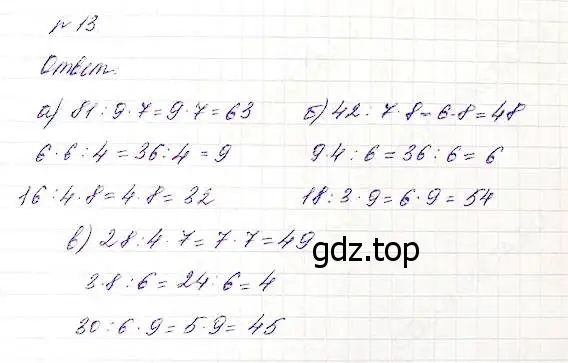 № 13
Ответ.
а) 81:9·7=9·7=63
6·6:4=36:4=9
16:4·8=4·8=32
б) 42:7·8=6·8=48
9·4:6=36:6=6
18:3·9=6·9=54
в) 28:4·7=7·7=49
3·8:6=24:6=4
30:6·9=5·9=45
gdz.top